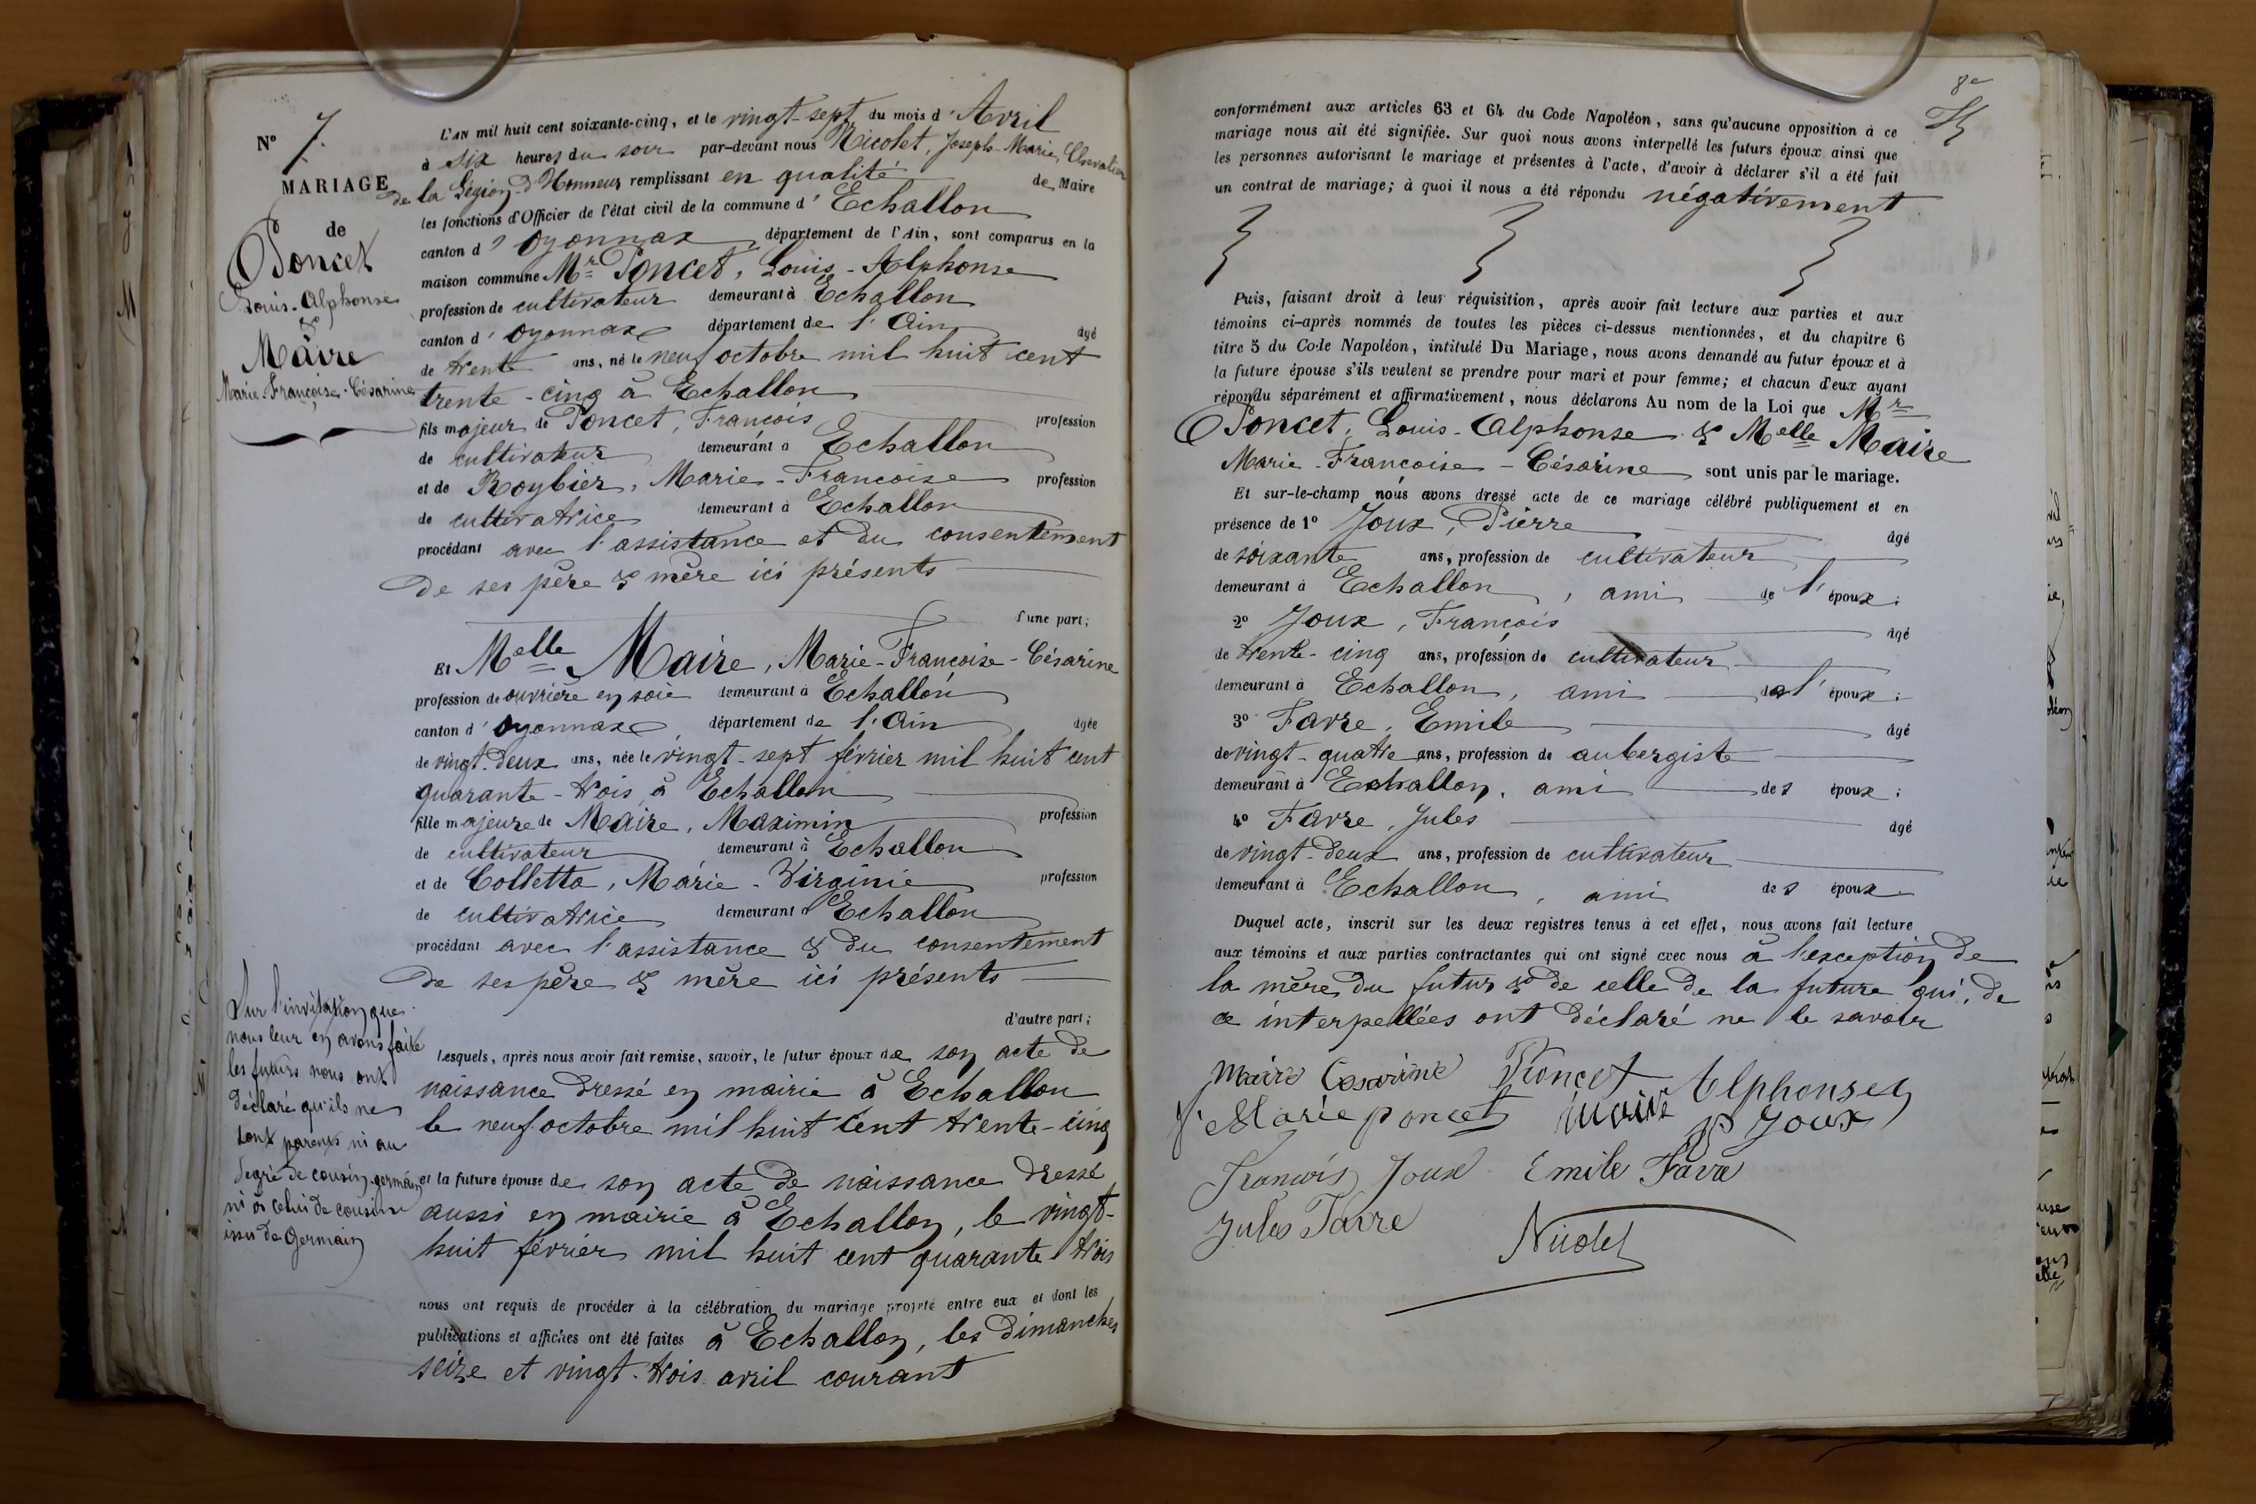 N° 7.
MARIAGE
de
Poncet
Louis-Alphonse
&
Maire
Marie-Françoise-Césarine
L'AN mil huit cent soixante-cinq, et le vingt-sept du mois d'Avril
à six heures du soir par-devant nous Nicolet, Joseph-Marie, Chevalier
de la Légion d'Honneur remplissant en qualité de Maire
les fonctions d'Officier de l'état civil de la commune d'Echallon
canton d'Oyonnax, département de l'Ain, sont comparus en la
maison commune Mr Poncet, Louis-Alphonse
profession de cultivateur demeurant à Echallon
canton d'Oyonnax département de l'Ain âgé
de trente ans, né le neuf octobre mil huit cent
trente-cinq à Echallon
fils majeur de Poncet, François profession
de cultivateur demeurant à Echallon
et de Roybier, Marie-Francoise profession
de cultivatrice demeurant à Echallon
procédant avec l'assistance et du consentement
de ses père & mère ici présents
d'une part;
Et Melle Maire, Marie-Françoise-Césarine
profession de ouvrière en soie demeurant à Echallon
canton d'Oyonnax département de l'Ain âgée
de vingt-deux ans, née le vingt-sept février mil huit cent
quarante-trois à Echallon
fille majeure de Maire, Maximin profession
de cultivateur demeurant à Echallon
et de Colletta, Marie-Virginie profession
de cultivatrice demeurant à Echallon
procédant avec l'assistance & du consentement
de ses père & mère ici présents
d'autre part;
Lesquels, après nous avoir fait remise, savoir, le futur époux de son acte de
naissance dressé en mairie à Echallon
le neuf octobre mil huit cent trente-cinq
et la future épouse de son acte de naissance dressé
aussi en mairie à Echallon, le vingt-
huit février mil huit cent quarante trois
nous ont requis de procéder à la célébration du mariage projeté entre eux et dont les
publications et affiches ont été faites à Echallon, les dimanches
seize et vingt-trois avril courant
Sur l'invitation que
nous leur en avons faite
les futurs nous ont
déclaré qu'ils ne
sont parents ni au
degré de cousin germain
ni à celui de cousin
issu de Germain
8e
conformément aux articles 63 et 64 du Code Napoléon, sans qu'aucune opposition à ce
mariage nous ait été signifiée. Sur quoi nous avons interpellé les futurs époux ainsi que
les personnes autorisant le mariage et présentes à l'acte, d'avoir à déclarer s'il a été fait
un contrat de mariage; à quoi il nous a été répondu négativement
Puis, faisant droit à leur réquisition, après avoir fait lecture aux parties et aux
témoins ci-après nommés de toutes les pièces ci-dessus mentionnées, et du chapitre 6
titre 5 du Code Napoléon, intitulé Du Mariage, nous avons demandé au futur époux et à
la future épouse s'ils veulent se prendre pour mari et pour femme; et chacun d'eux ayant
répondu séparément et affirmativement, nous déclarons Au nom de la Loi que Mr
Poncet, Louis-Alphonse & Melle Maire
Marie-Francoise-Césarine sont unis par le mariage.
Et sur-le-champ nous avons dressé acte de ce mariage célébré publiquement et en
présence de 1° Joux, Pierre âgé
de soixante ans, profession de cultivateur
demeurant à Echallon, ami de l'époux;
2° Joux, François âgé
de trente-cinq ans, profession de cultivateur
demeurant à Echallon, ami de l'époux;
3° Favre, Emile âgé
de vingt-quatre ans, profession de aubergiste
demeurant à Echallon, ami des époux;
4° Favre, Jules âgé
de vingt-deux ans, profession de cultivateur
demeurant à Echallon, ami des époux
Duquel acte, inscrit sur les deux registres tenus à cet effet, nous avons fait lecture
aux témoins et aux parties contractantes qui ont signé avec nous à l'exception de
la mère du futur & de celle de la future qui, de
ce interpellées ont déclaré ne le savoir
Maire Cesarine Poncet Alphonse
f. Marie poncet maire P Joux
Francois Joux Emile Favre
Jules Favre Nicolet